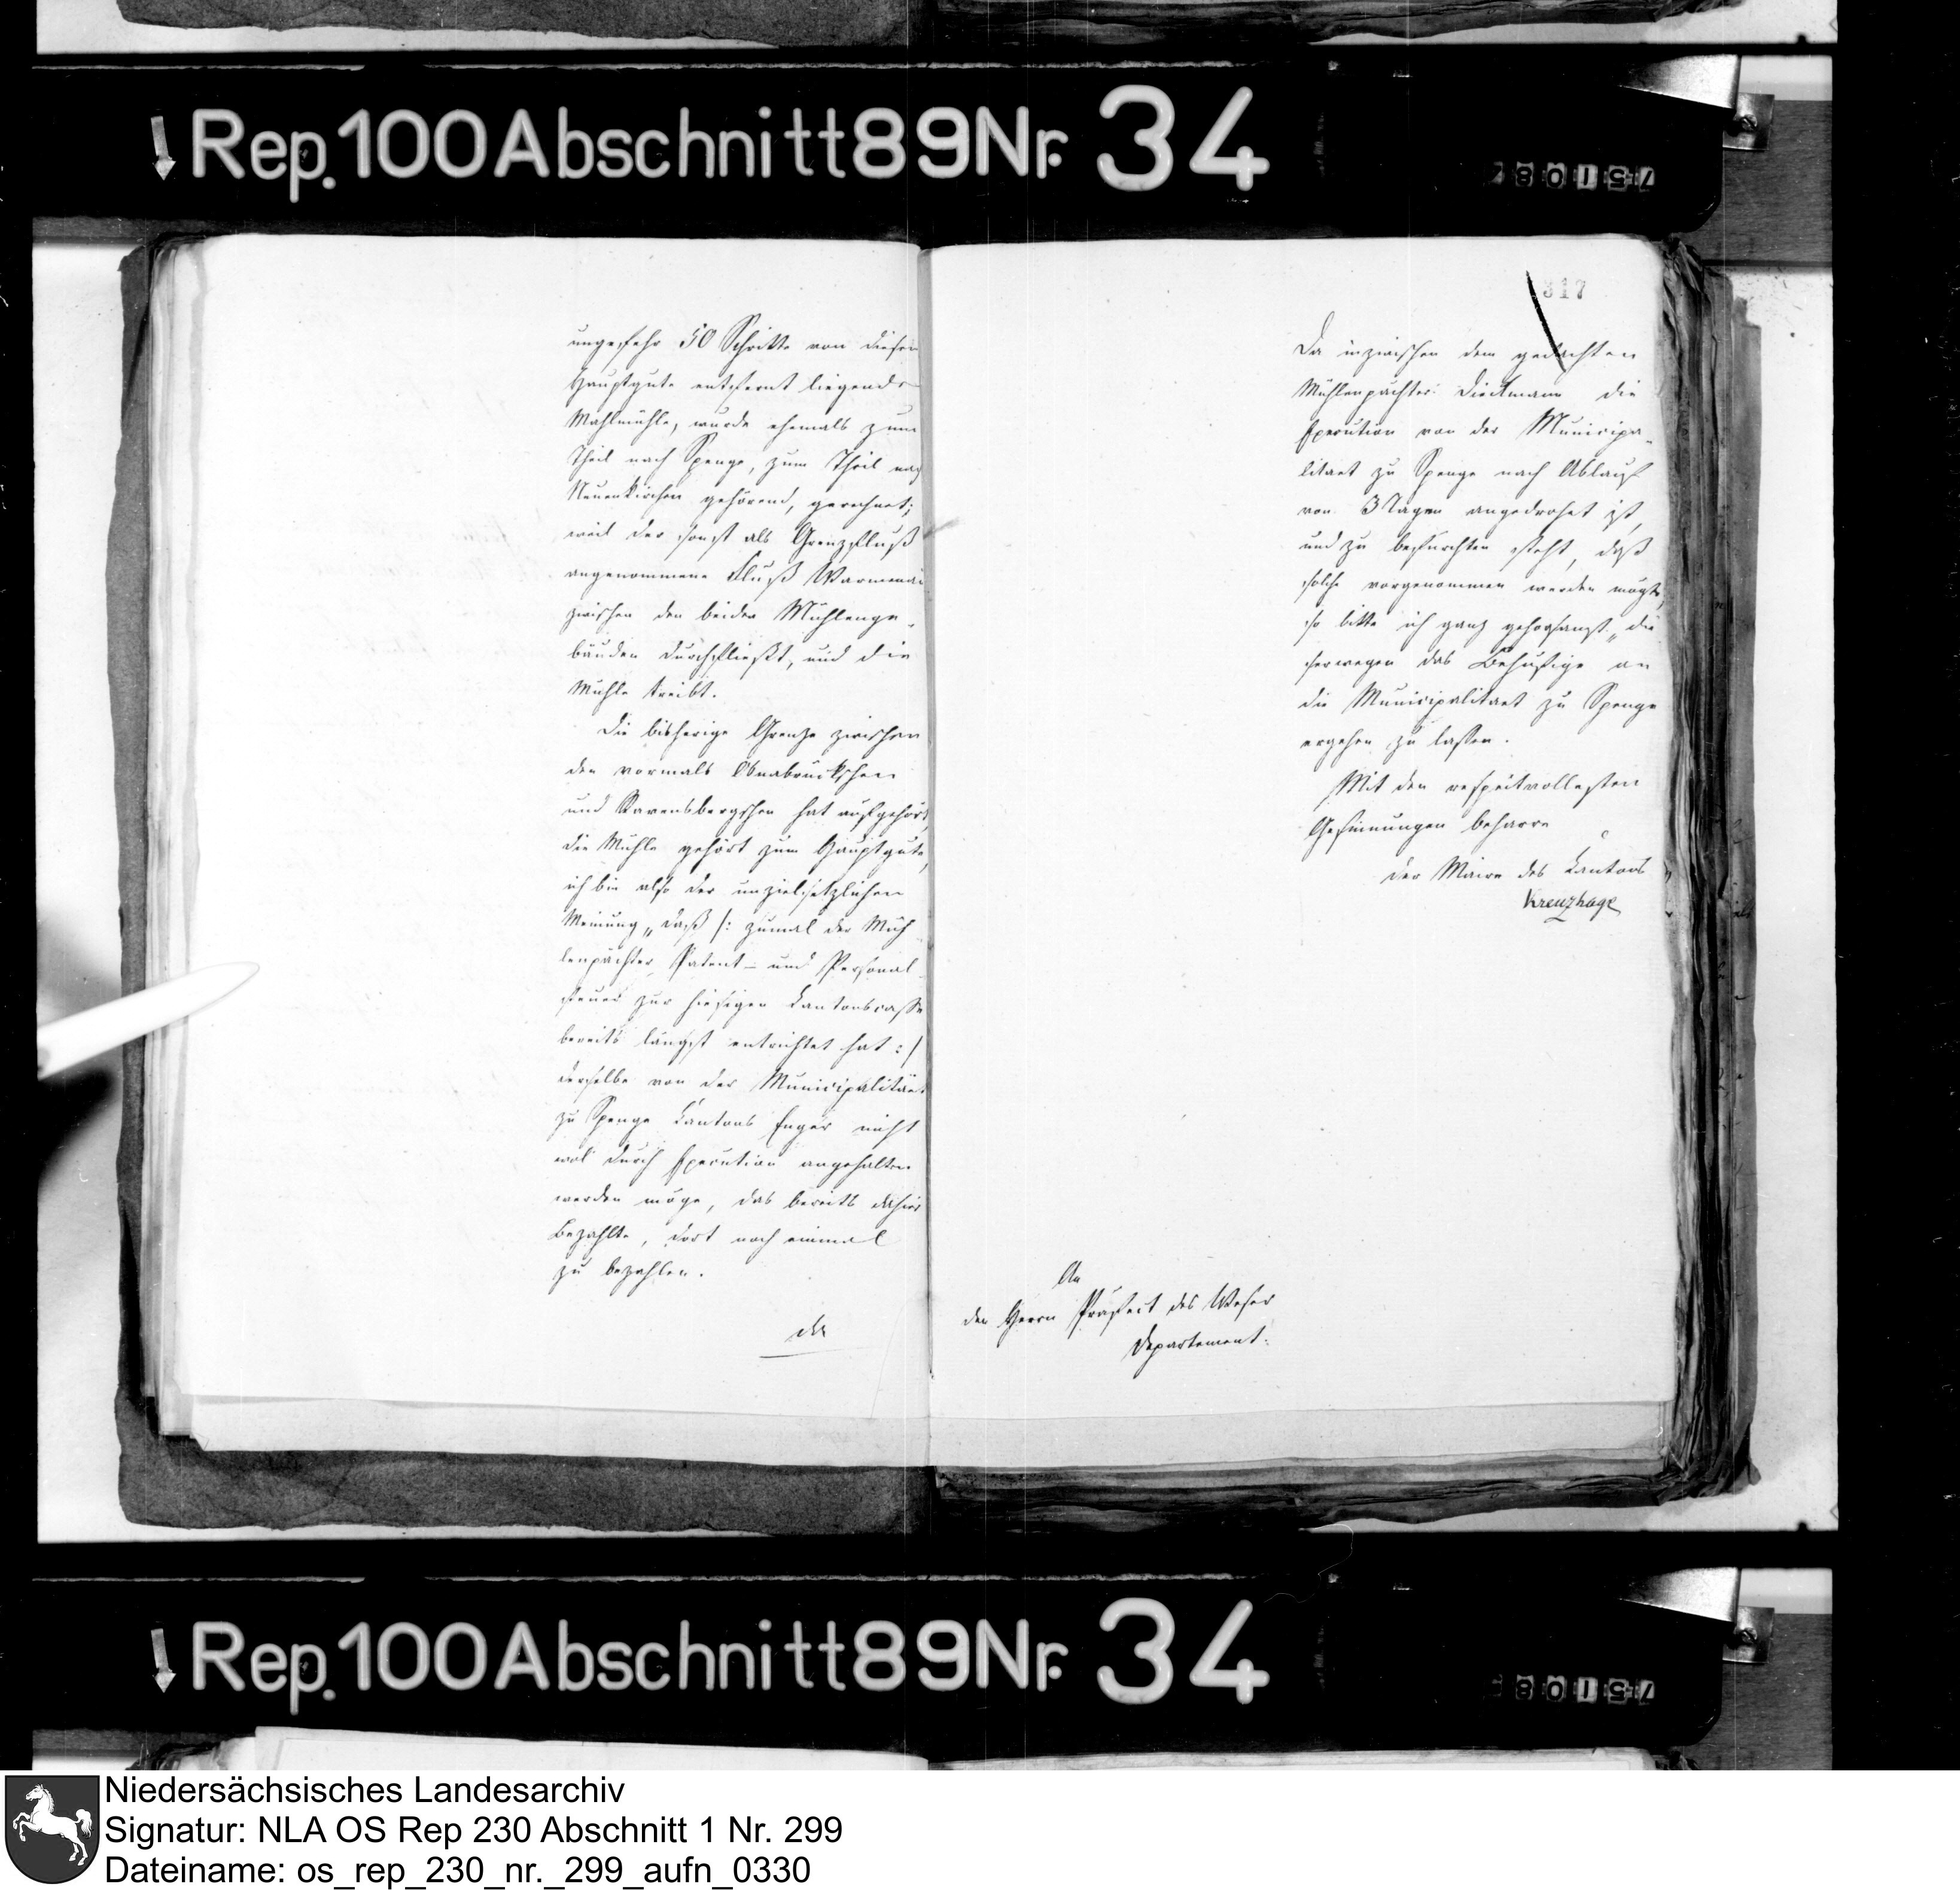 Rep. 100 Abschnitt 89 Nr. 34
ungefehr 50 Schritte von diesem
Hauptgute entfernt liegende
Mahlmühle, wurde ehemals zum
Theil nach Spenge, zum Theil nach
Neuenkirchen gehörend, gerechnet;
weil der sonst als Grenzfluß
angenommene Fluß Warmenau
zwischen den beiden Mühlenge-
bäuden durchfließt, und die
Mühle treibt.
Die bisherige Grenze zwischen
den vormals Osnabrückschen
und Ravensbergschen hat aufgehört,
die Mühle gehört zum Hauptgute,
ich bin also der unzielsetzlichen
Meinung „daß /: zumal der Müh-
lenpächter Patent- und Personal-
steuer zur hiesigen Cantonscasse
bereits längst entrichtet hat :/
derselbe von der Municipalitäet
zu Spenge Cantons Enger nicht
wol durch Execution angehalten
werden möge, das bereits dahier
Bezahlte, dort noch einmal
zu bezahlen.
Da
317
Da inzwischen dem gedachten
Mühlenpächter Dieckmann die
Execution von der Municipa-
litaet zu Spenge nach Ablauf
von 3 Tagen angedrohet ist,
und zu befürchten steht, daß
solche vorgenommen werden mögte,
so bitte ich ganz gehorsamst, die-
serwegen das Behufige an
die Municipalitaet zu Spenge
ergehen zu lassen.
Mit den respectvollesten
Gesinnungen beharre
der Maire des Cantons
Kreuzhage
An
den Herrn Präfect des Weser
Departement.
Rep. 100 Abschnitt 89 Nr. 34
Niedersächsisches Landesarchiv
Signatur: NLA OS Rep 230 Abschnitt 1 Nr. 299
Dateiname: os_rep_230_nr._299_aufn_0330